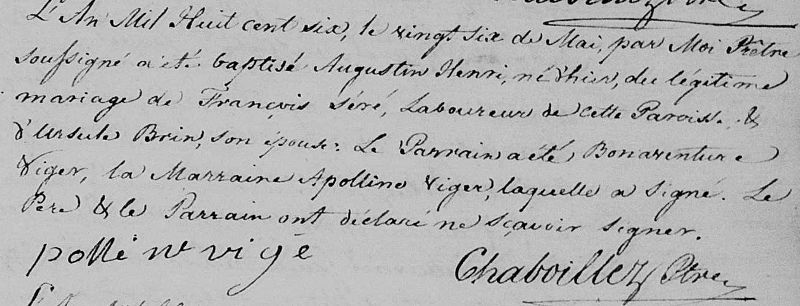 L'An Mil Huit cent six, le vingt six de Mai, par Moi Prêtre
soussigné a été baptisé Augustin Henri, né d'hier, du légitime
mariage de François Séré, Laboureur de cette Paroisse &
d'Ursule Brin, son épouse. Le Parrain a été, Bonaventure
Viger, la Marraine Apolline Viger, laquelle a signé. Le
Pere & le Parrain ont déclaré ne sçavoir signer.
polli ne vigé
Chaboillez Ptre